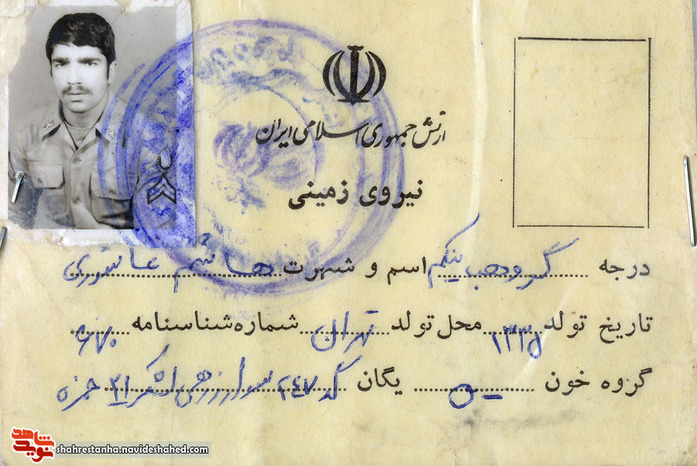 ارتش جمهوری اسلامی ایران
نیروی زمینی
درجه گروهبان یکم اسم و شهرت هاشم عاشوری
تاریخ تولد ۱۳۳۵ محل تولد تهران شماره شناسنامه
گروه خون یگان گد ۲۴۷ سوار زرهی لشکر ۲۱ حمزه
نوید شاهد
shahrestanha.navideshahed.com